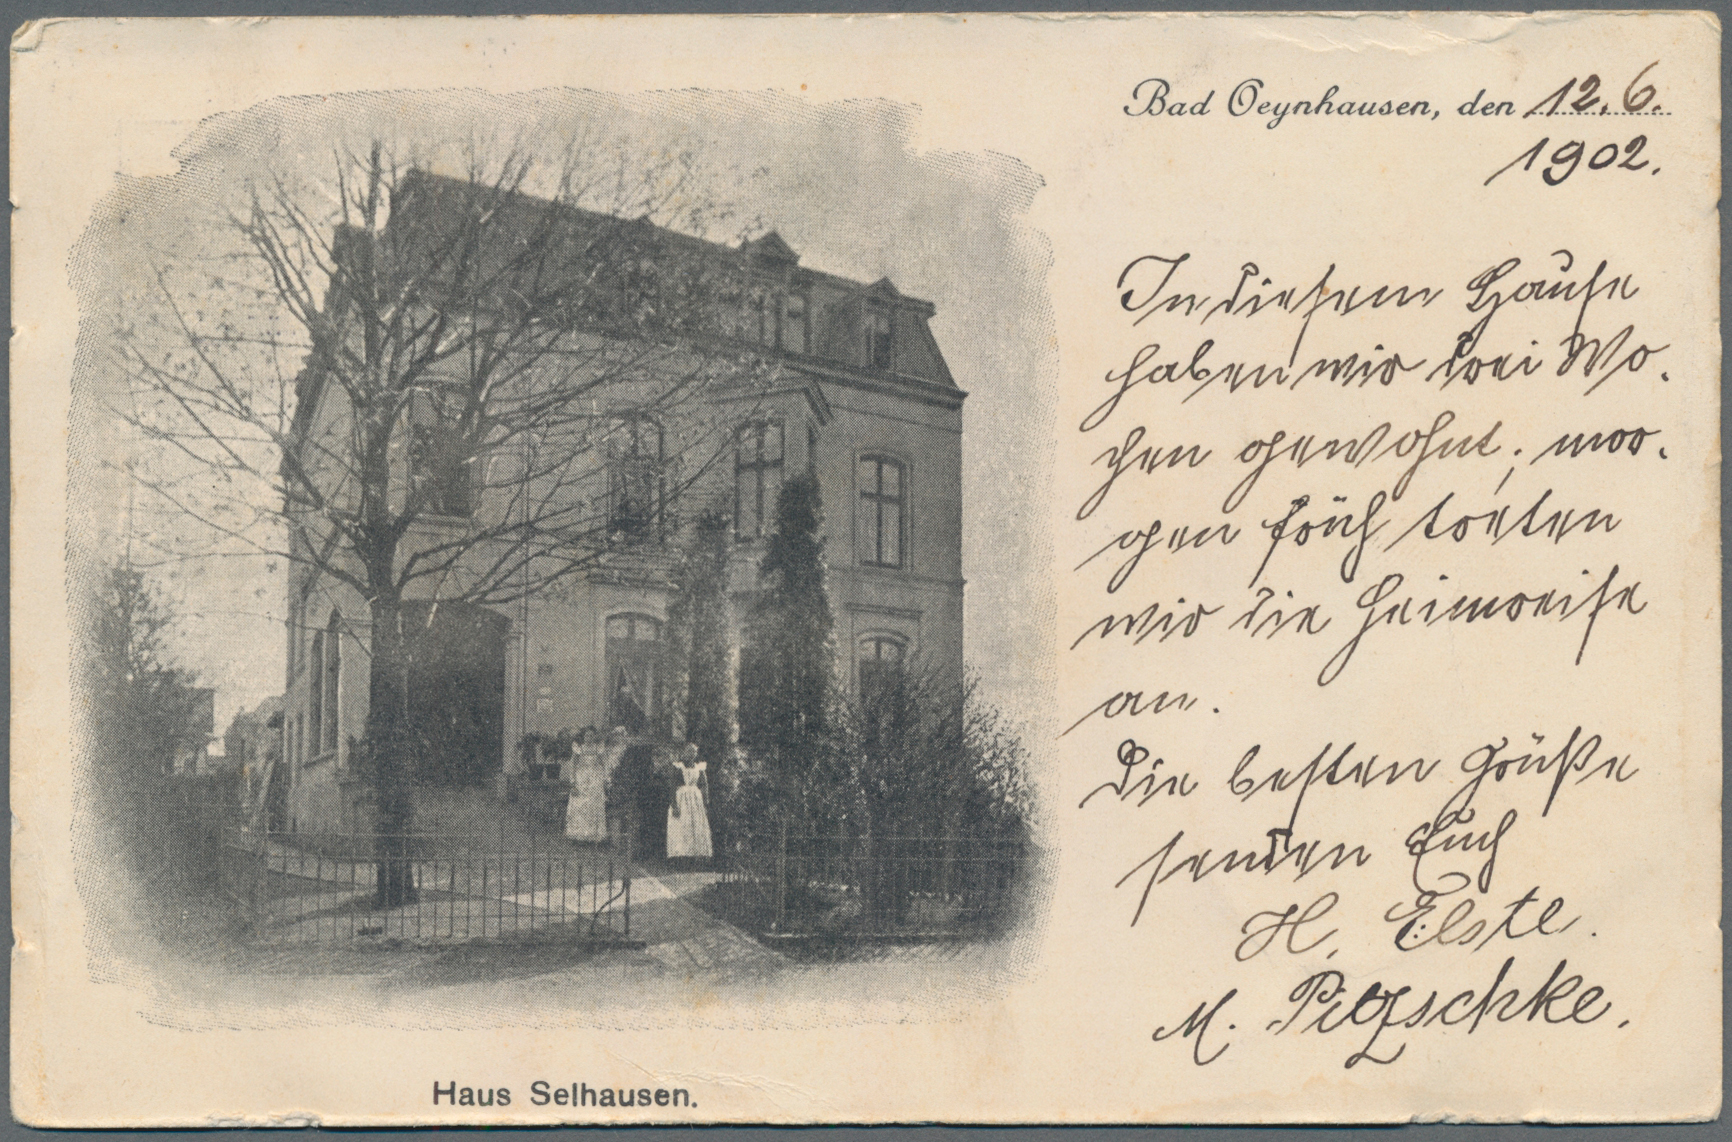 Bad Oeynhausen, den 12.6.
1902.
In diesem Hause
haben wir drei Wo-
chen gewohnt; mor-
gen früh treten
wir die Heimreise
an.
Die besten Grüße
senden Euch
H. Elste.
M. Pitzschke.
Haus Selhausen.